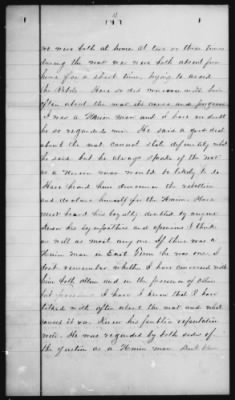 we were both at home. At two or three times
during the war we were both about from
home for a short time, trying to avoid
the Rebels. Have so did converse with him
often about the war its cause and progress
I was a Union man and I have no doubt
he so regarded me. He said a good deal
about the war cannot state definitely what
he said but he always spoke of the war
as a Union man would be likely to do.
Have heard him denounce the rebellion
and declare himself for the Union. Have
never heard his loyalty doubted by anyone
Know his sympathies and opinions I think
as well as most any one. If there was a
Union man in East Tenn he was one. I
don't remember whether I have conversed with
him both alone and in the presence of others
but I have I know that I have
talked with often alone the war and what
caused it &c. Know his public reputation
well. He was regarded by both sides of
the question as a Union man.